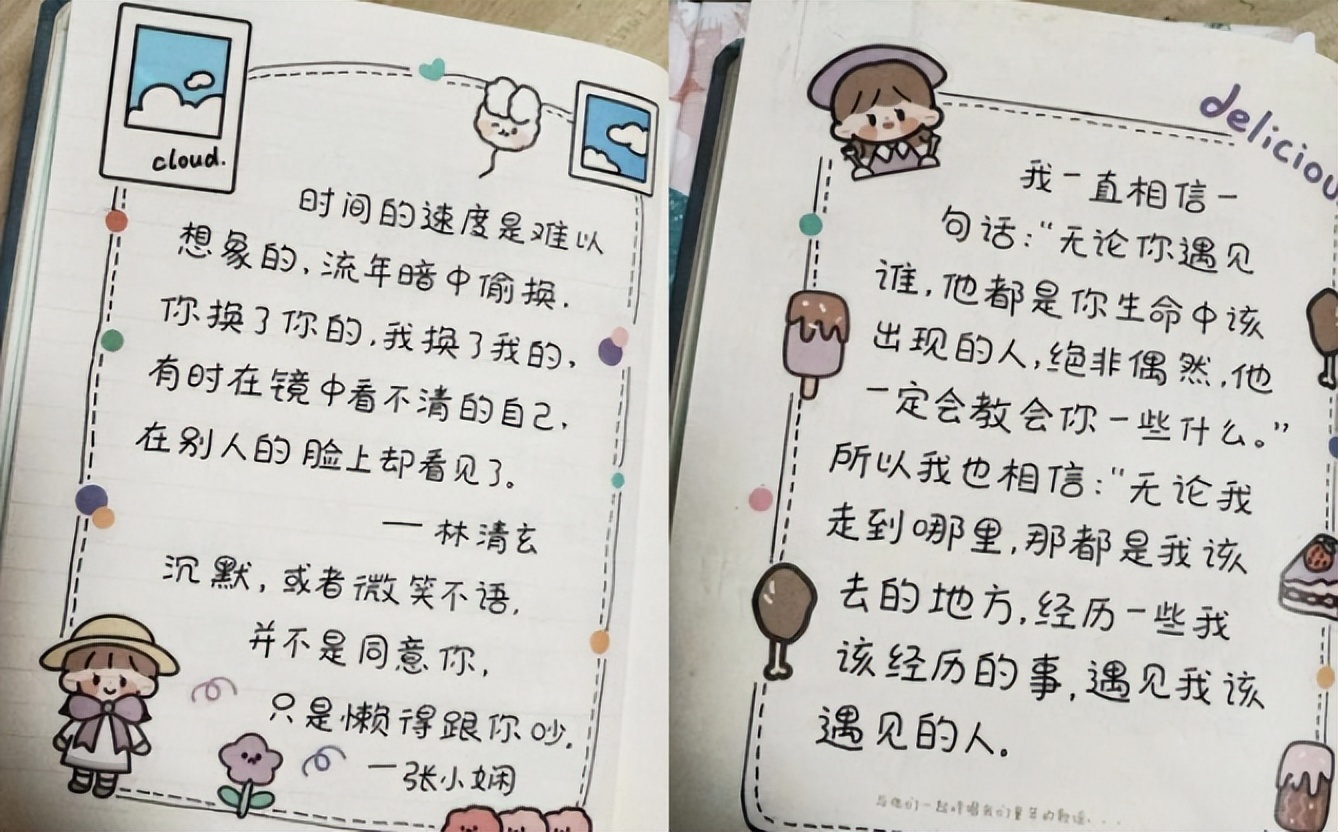 cloud.
时间的速度是难以
想象的,流年暗中偷换.
你换了你的,我换了我的,
有时在镜中看不清的自己,
在别人的脸上却看见了。
—林清玄
沉默,或者微笑不语,
并不是同意你,
只是懒得跟你吵。
—张小娴
deliciou
我一直相信一
句话:“无论你遇见
谁,他都是你生命中该
出现的人,绝非偶然,他
一定会教会你一些什么。”
所以我也相信:“无论我
走到哪里,那都是我该
去的地方,经历一些我
该经历的事,遇见我该
遇见的人。